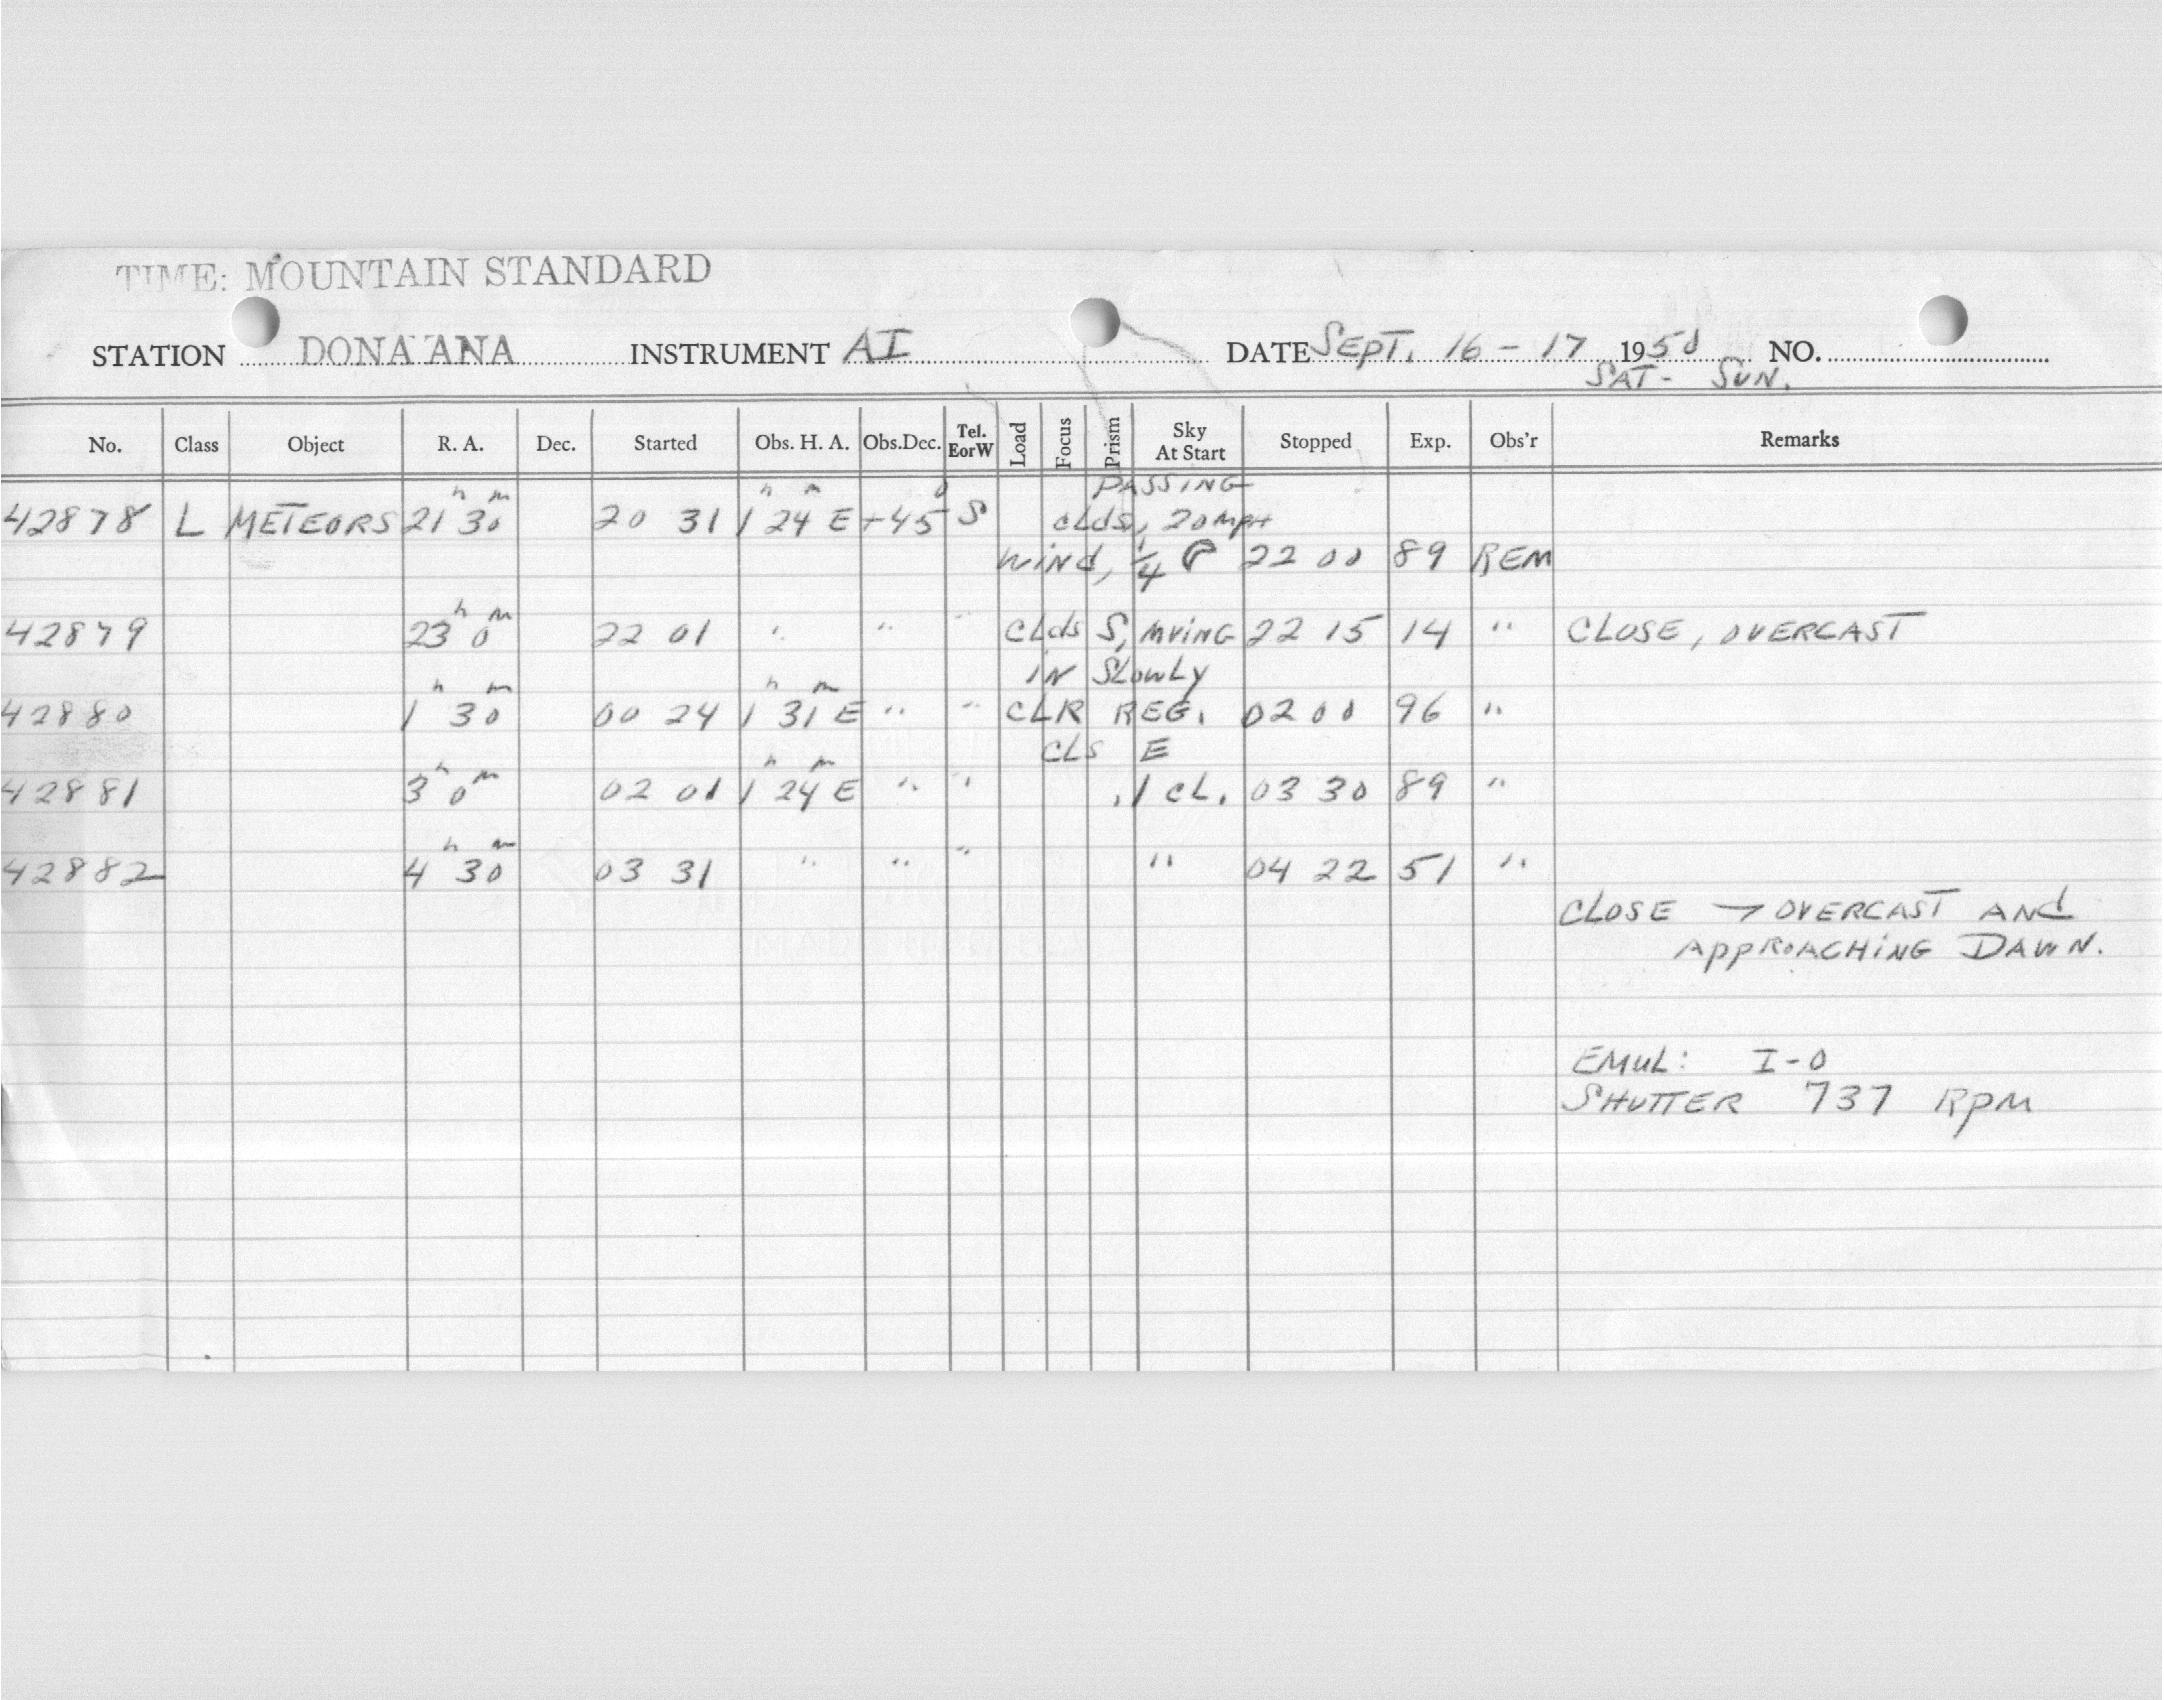 TIME: MOUNTAIN STANDARD
STATION DONA ANA INSTRUMENT AI DATE SEPT. 16 - 17 1950 NO.
SAT - SUN.
No. Class Object R. A. Dec. Started Obs. H. A. Obs.Dec. Tel. EorW Load Focus Prism Sky At Start Stopped Exp. Obs'r Remarks
PASSING
42878 L METEORS 21h 30m 20 31 1h 24m E +45° S clds, 20 mpH
WIND, 1/4 22 00 89 REM
42879 23h 0m 22 01 " " " CLds S, MVING 22 15 14 " CLOSE, OVERCAST
IN SLOWLY
42880 1h 30m 00 24 1h 31m E " " CLR REG. 02 00 96 "
CLS E
42881 3h 0m 02 01 1h 24m E " " .1 CL. 03 30 89 "
42882 4h 30m 03 31 " " " " 04 22 51 "
CLOSE → OVERCAST ANd
APPROACHING DAWN.
EMUL: I-0
SHUTTER 737 RPM